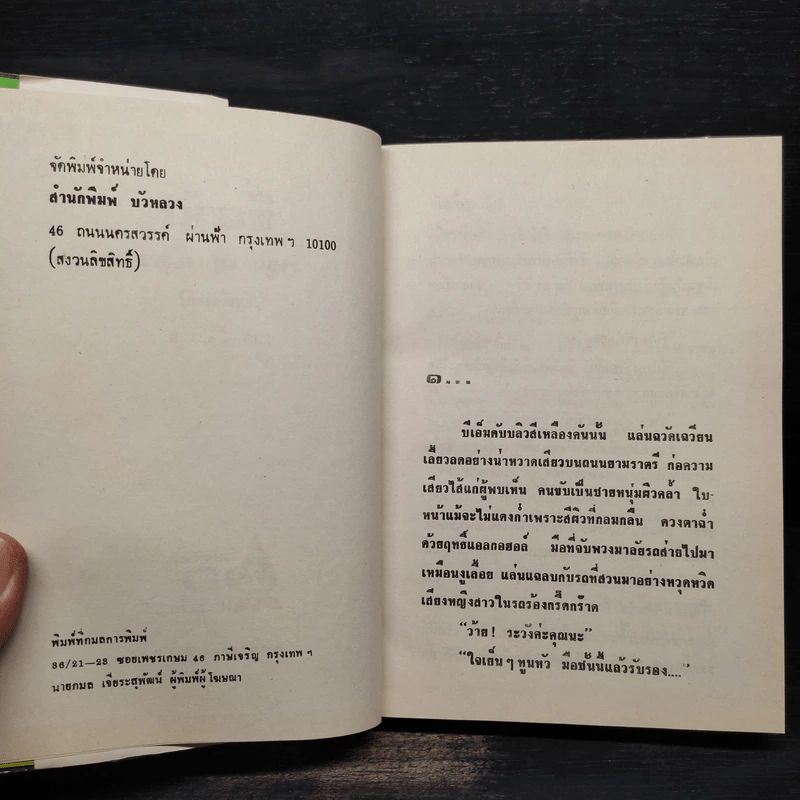 จัดพิมพ์จำหน่ายโดย
สำนักพิมพ์ บัวหลวง
46 ถนนนครสวรรค์ ผ่านฟ้า กรุงเทพฯ 10100
(สงวนลิขสิทธิ์)
พิมพ์ที่กมลการพิมพ์
36/21—23 ซอยเพชรเกษม 46 ภาษีเจริญ กรุงเทพฯ
นายกมล เจียระสุพัฒน์ ผู้พิมพ์ผู้โฆษณา
๑...
บีเอ็มดับบลิวสีเหลืองคันนั้น แล่นฉวัดเฉวียน
เลี้ยวลดอย่างน่าหวาดเสียวบนถนนยามราตรี ก่อความ
เสียวไส้แก่ผู้พบเห็น คนขับเป็นชายหนุ่มผิวคล้ำ ใบ-
หน้าแม้จะไม่แดงก่ำเพราะสีผิวที่กลมกลืน ดวงตาฉ่ำ
ด้วยฤทธิ์แอลกอฮอล์ มือที่จับพวงมาลัยรถส่ายไปมา
เหมือนงูเลื้อย แล่นแฉลบกับรถที่สวนมาอย่างหวุดหวิด
เสียงหญิงสาวในรถร้องกรี๊ดกร๊าด
“ว้าย! ระวังค่ะคุณนะ”
“ใจเย็นๆ ทูนหัว มือชั้นนี้แล้วรับรอง....”